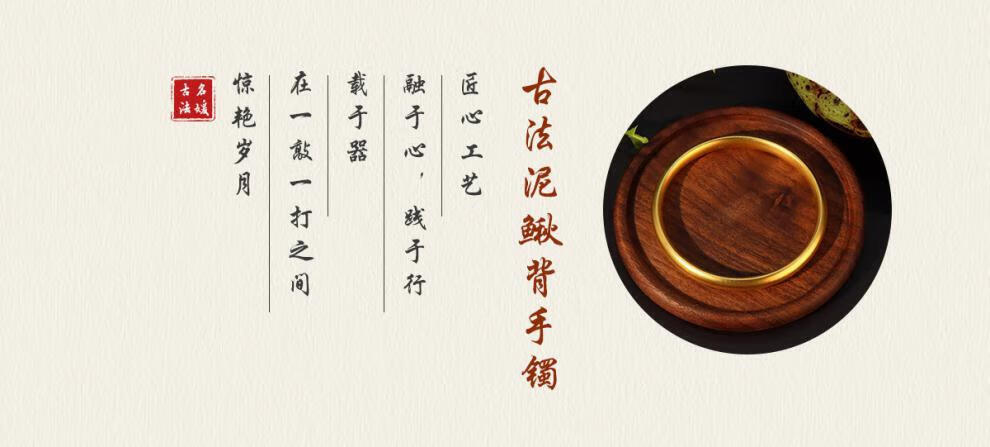 古法泥鳅背手镯
匠心工艺
融于心，践于行
载于器
在一敲一打之间
惊艳岁月
名媛
古法